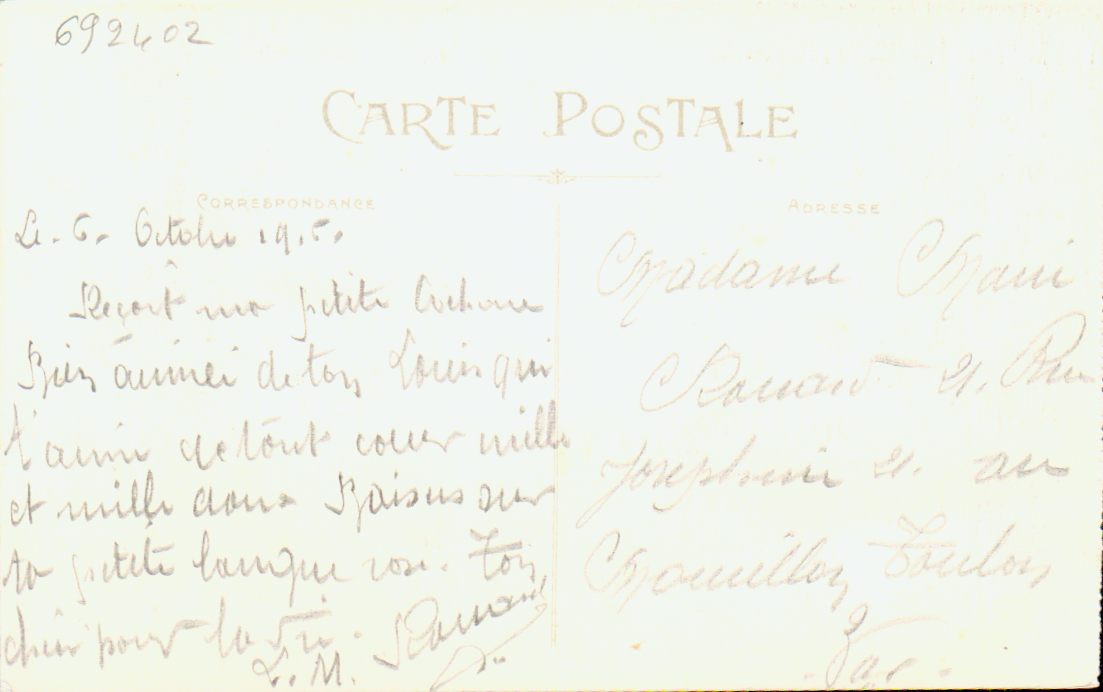 692402
CARTE POSTALE
CORRESPONDANCE
ADRESSE
Le. 5. Octobre
Reçoit ma petite
Bien aimée de ton Louis qui
t'aime de tout coeur mille
et mille doux Baisers sur
ta petite langue rose. Ton
chéri pour la vie.
L. M. Rouard
Madame
Rouard 21. Rue
Josephine 21. au
Mourillon Toulon
Var.